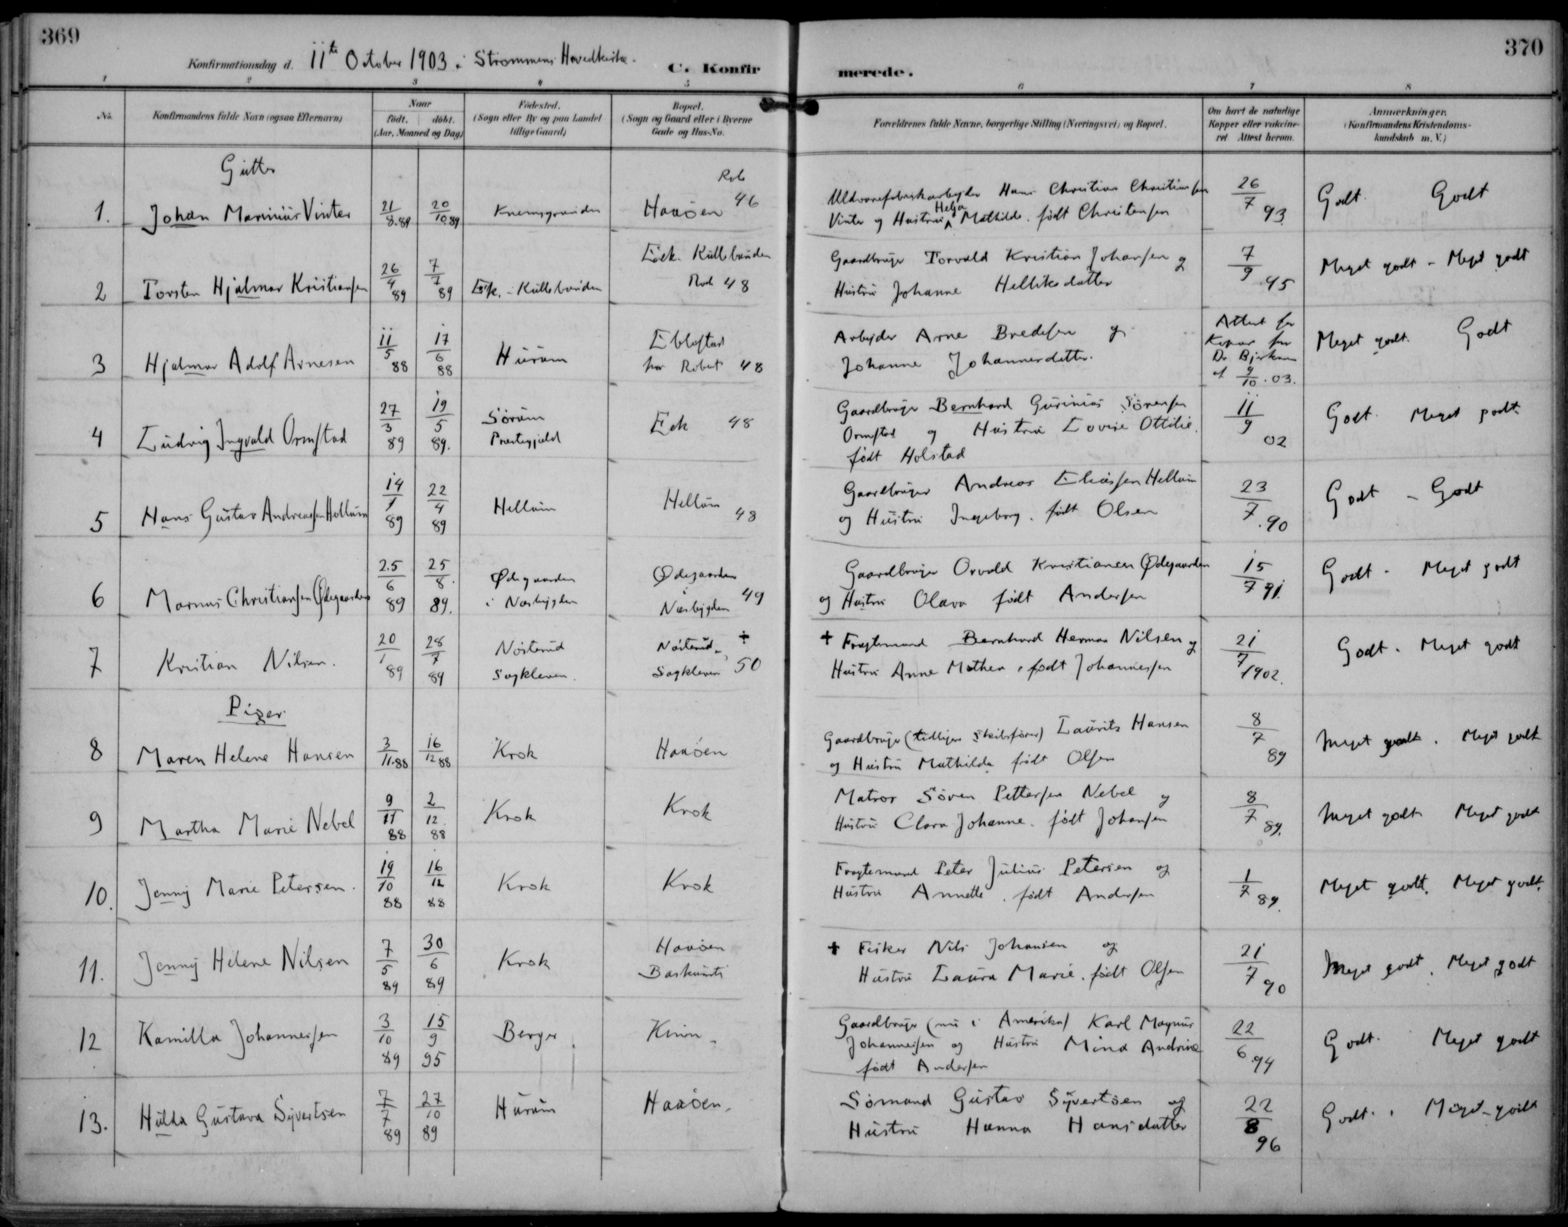 369
370
Konfirmationsdag d. 11te October 1903 i Strømmens Hovedkirke.
C. Konfirmerede.
1 2 3 4 5 6 7 8
No. Konfirmandens fulde Navn (ogsaa Efternavn) Naar født. døbt. (Aar, Maaned og Dag) Fødested. (Sogn eller By og paa Landet tillige Gaard) Bopæl. (Sogn og Gaard eller i Byerne Gade og Hus-No. Forældrenes fulde Navne, borgerlige Stilling (Næringsvei) og Bopæl. Om havt de naturlige Kopper eller vaccineret Attest herom. Anmærkninger. (Konfirmandens Kristendomskundskab m. V.)
Gutter
1. Johan Marinius Vinter 21/8.89 20/10.89 Haaøen 46 Hans Christian Christiansen
Vinter og Hustru Helga Mathilde. født Christensen 26/7 93 Godt. Godt
2 Torsten Hjalmar Kristiansen 26/4 89 7/7 89 Ek. - Kullebunden Eek. Kullebunden 48 Gaardbruger Torvald Kristian Johansen og
Hustru Johanne Helliksdatter 7/9 95 Meget godt - Meget godt
3 Hjalmar Adolf Arnesen 11/5 88 17/6 88 Hurum 48 Arbeider Arne Bredesen og
Johanne Johannesdatter. Attest for Kopper fra Dr Bjerknes af 9/10.03. Meget godt. Godt
4 Ludvig Ingvald Ormstad 27/3 89 19/5 89. Sørum Præstegjeld Eek 48 Gaardbruger Bernhard Gurinius Sørensen
Ormstad og Hustru Lovise Ottilie.
født Holstad 11/9 02 Godt. Meget godt.
5 Hans Gustav Andreassen Hellum 14/1 89 22/4 89 Hellum Hellum 48 Gaardbruger Andreas Eliassen Hellum
og Hustru Ingeborg. født Olsen 23/7.90 Godt - Godt
6 Marius Christiansen Ødegaarden 25/6 89 25/8. 89. Ødegaarden i Næsbygden Ødegaarden i Næsbygden 49 Gaardbruger Orvald Kristiansen Ødegaarden
og Hustru Olava født Andersen 15/7 91. Godt - Meget godt
7 Kristian Nilsen. 20/1 89 28/7 89 Nøsterud Sagkleven. Nøsterud Sagkleven 50 + Fragtemand Bernhard Herman Nilsen og
Hustru Anne Mathea. født Johannessen 21/7 1902. Godt. Meget godt
Piger
8 Maren Helene Hansen 3/11.88 16/12 88 Krok Haaøen Gaardbruger (tidligere Skibsfører) Laurits Hansen
og Hustru Mathilde født Olsen 8/7 89 Meget godt. Meget godt
9 Martha Marie Nebel 9/11 88 2/12. 88 Krok Krok Matros Søren Pettersen Nebel og
Hustru Clara Johanne. født Johansen 8/7 89. Meget godt Meget godt
10. Jenny Marie Petersen. 19/10 88 16/12 88 Krok Krok Fragtemand Peter Julius Petersen og
Hustru Annette. født Andersen 1/7 89. Meget godt. Meget godt.
11. Jenny Helene Nilsen 7/5 89 30/6 89 Krok Haaøen + Fisker Nils Johansen og
Hustru Laura Marie. født Olsen 21/7 90 Meget godt. Meget godt
12 Kamilla Johannessen 3/10 89 15/9 95 Berger Gaardbruger (nu i Amerika) Karl Magnus
Johannessen og Hustru Mina Andrine
født Andersen 22/6.94 Godt. Meget godt
13. Hulda Gustava Syvertsen 7/7 89 27/10 89 Hurum Haaøen. Sømand Gustav Syvertsen og
Hustru Hanna Hansdatter 22/8 96 Godt. Meget godt